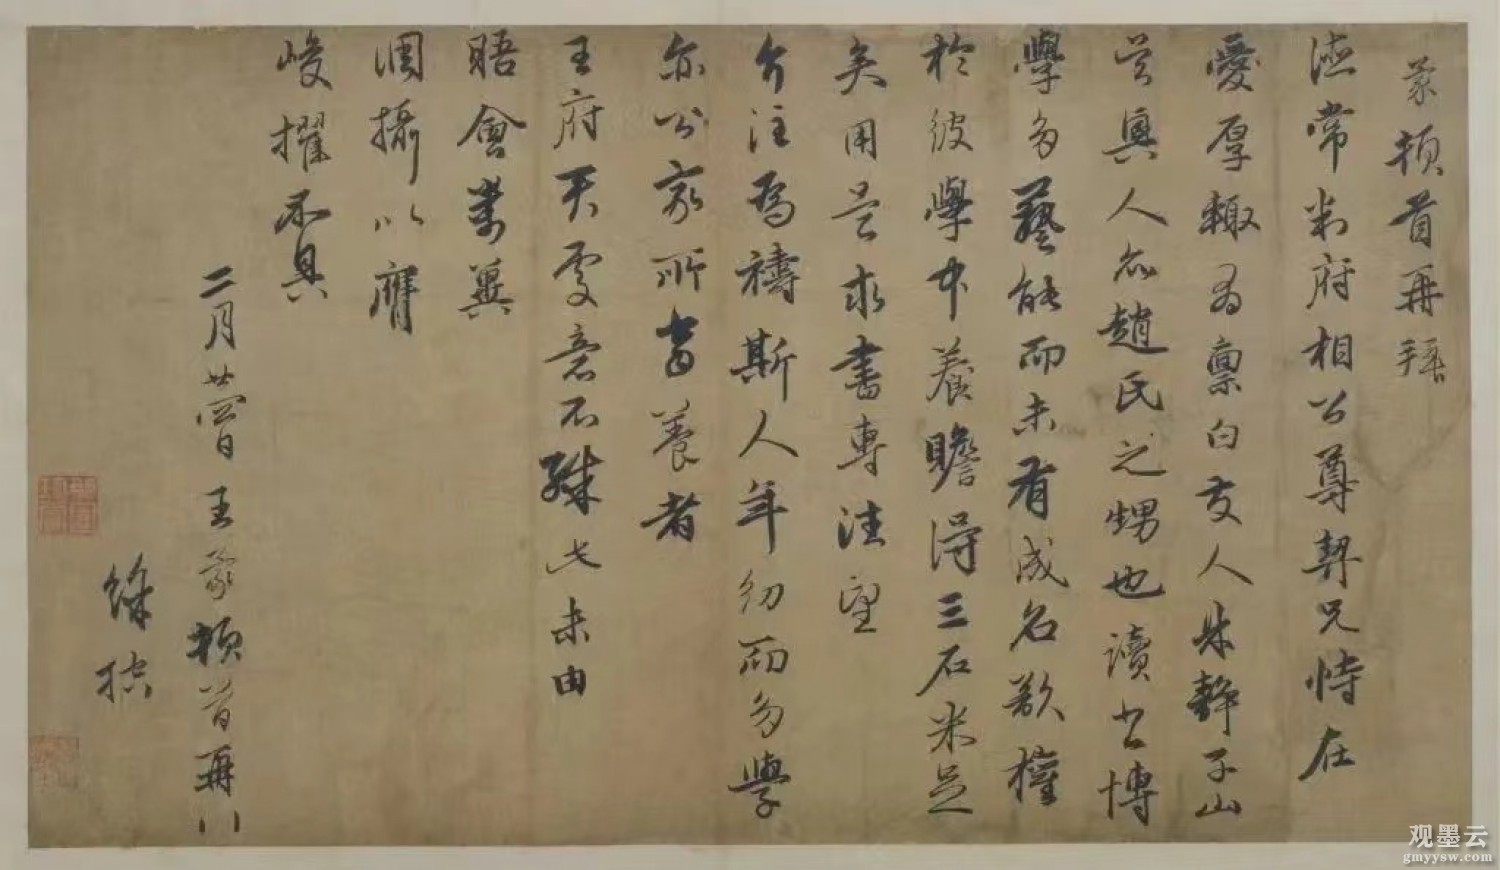 蒙頓首再拜
德常判府相公尊契兄恃在
愛厚輒為禀白友人朱靜子山
吳興人亦趙氏之甥也讀書博
學多藝能而未有成名欲權
於彼學中養贍得三石米足
矣用是求書專注望
介注為禱斯人年幼而多學
亦公家所當養者
王府天處意不殊此未由
晤會萬冀
調攝以膺
峻擢不具
二月廿四日王蒙頓首再拜
观墨云
gmyysw.com